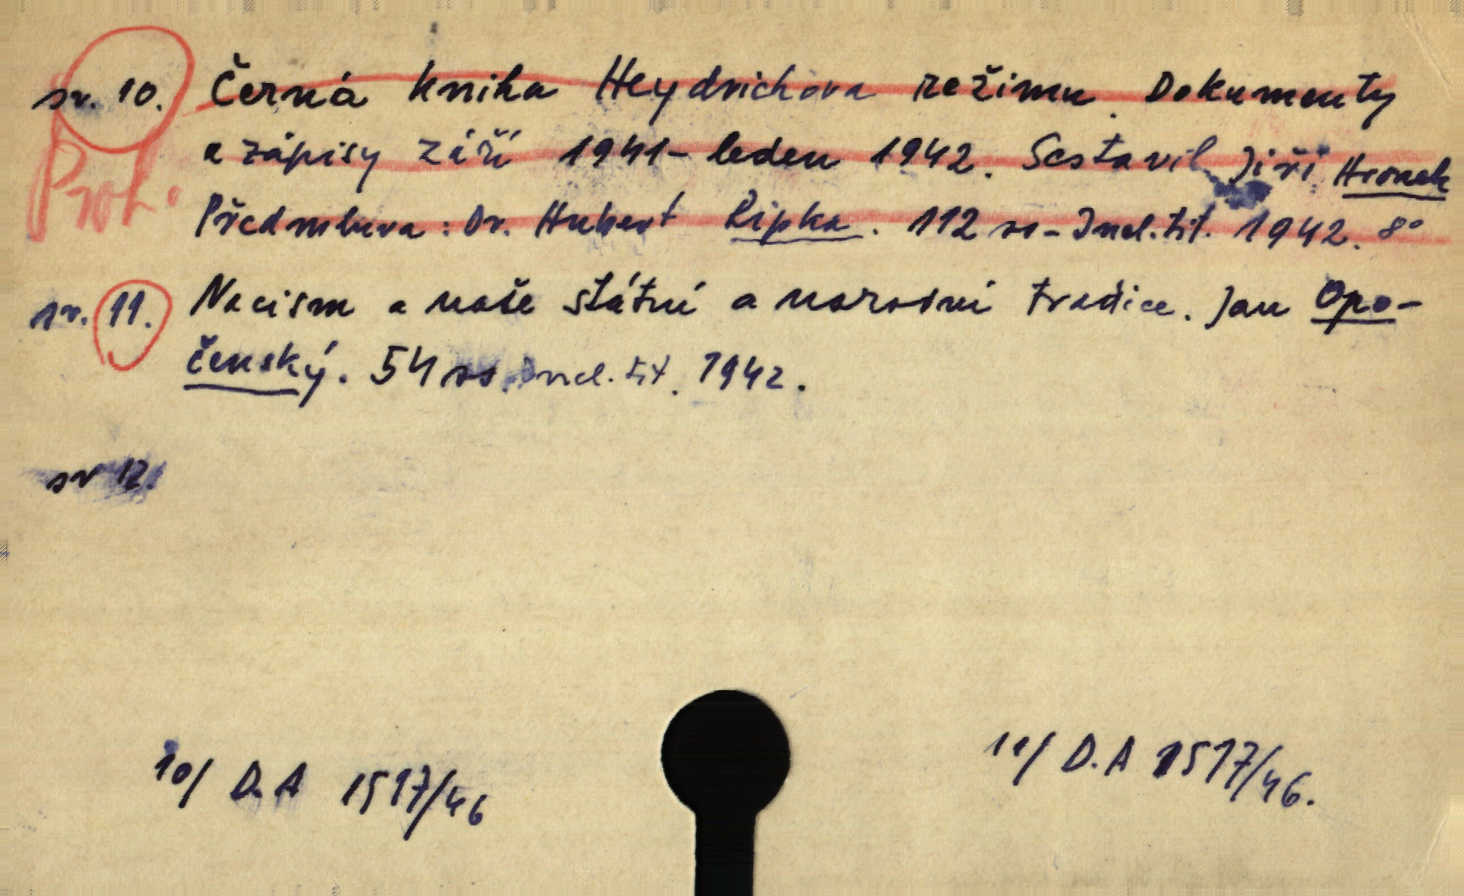 sv. 10. Černá kniha Heydrichova režimu. Dokumenty
a zápisy září 1941 - leden 1942. Sestavil Jiří Hronek
Proh.
Předmluva: Dr. Hubert Ripka. 112 ss - Incl. tit. 1942. 8°
sv. 11. Nacism a naše státní a národní tradice. Jan Opo-
čenský. 54 ss. Incl. tit. 1942.
sv 12.
10/ D.A 1517/46
11/ D.A 1517/46.